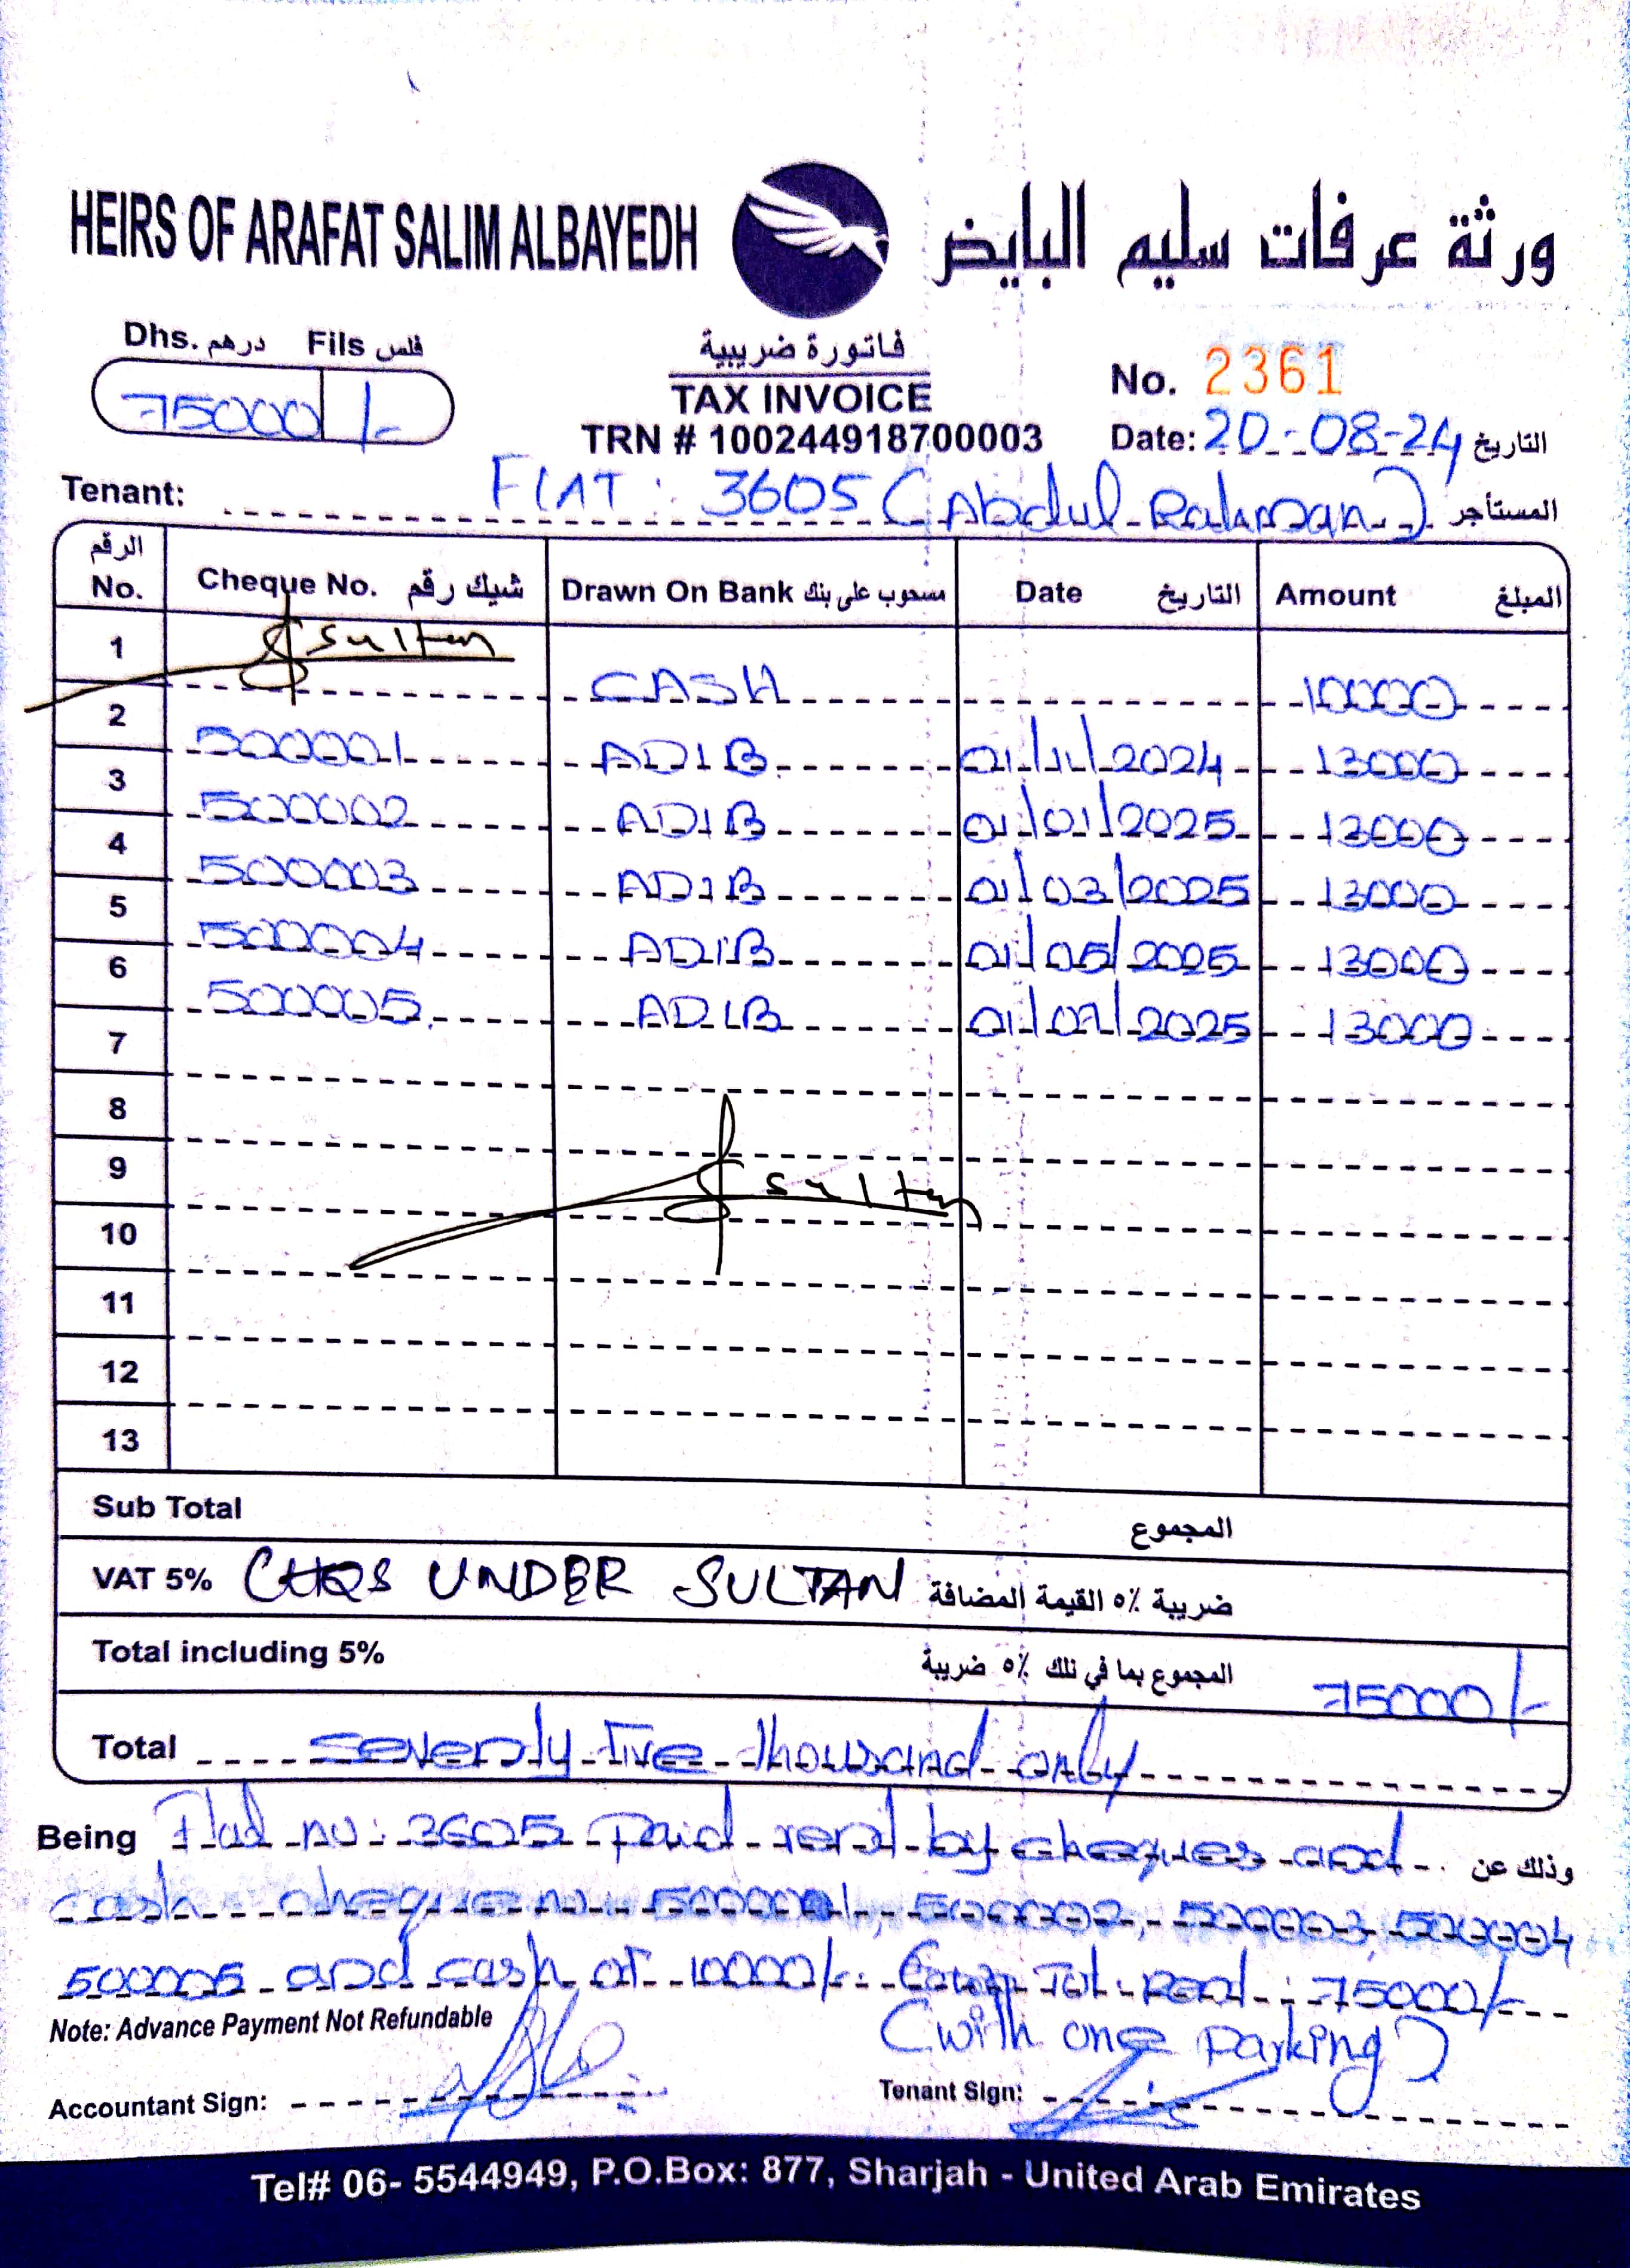 HEIRS OF ARAFAT SALIM ALBAYEDH ورثة عرفات سليم البايض
Dhs. درهم Fils فلس
75000 /-
فاتورة ضريبية
TAX INVOICE
TRN # 100244918700003
No. 2361
Date: 20-08-24 التاريخ
Tenant: FLAT: 3605 (Abdul Rahman) المستأجر
الرقم No. Cheque No. شيك رقم Drawn On Bank مسحوب على بنك Date التاريخ Amount المبلغ
1 Sultan CASH 10000
2 500001 ADIB 01/11/2024 13000
3 500002 ADIB 01/01/2025 13000
4 500003 ADIB 01/03/2025 13000
5 500004 ADIB 01/05/2025 13000
6 500005 ADIB 01/07/2025 13000
7
8
9 Sultan
10
11
12
13
Sub Total المجموع
VAT 5% CHQS UNDER SULTAN ضريبة ٥٪ القيمة المضافة
Total including 5% المجموع بما في ذلك ٥٪ ضريبة 75000/-
Total seventy five thousand only
Being Flat no: 3605 Paid rent by cheques and وذلك عن
cash cheque no: 500001, 500002, 500003, 500004
500005 and cash of 10000/- Tot. Rent: 75000/-
Note: Advance Payment Not Refundable (with one parking)
Accountant Sign: Tenant Sign:
Tel# 06- 5544949, P.O.Box: 877, Sharjah - United Arab Emirates